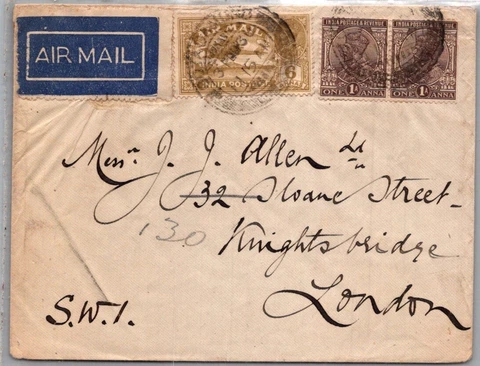 AIR MAIL
AIR MAIL
6
INDIA POSTAGE
INDIA POSTAGE & REVENUE
INDIA POSTAGE & REVENUE
ONE 1A ANNA
ONE 1A ANNA
Messrs J. J. Allen Ld
32 Sloane Street
130 Knightsbridge
London
S.W.1.